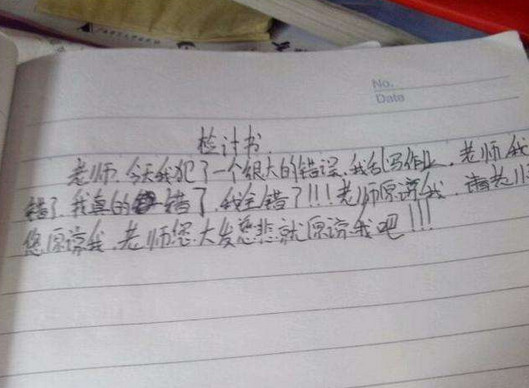 No.
Date
检讨书
老师.今天我犯了一个很大的错误,我乱写作业.老师我
错了.我真的错了,我全错了!!!老师原谅我.请老师
您原谅我.老师您大发慈悲就原谅我吧!!!